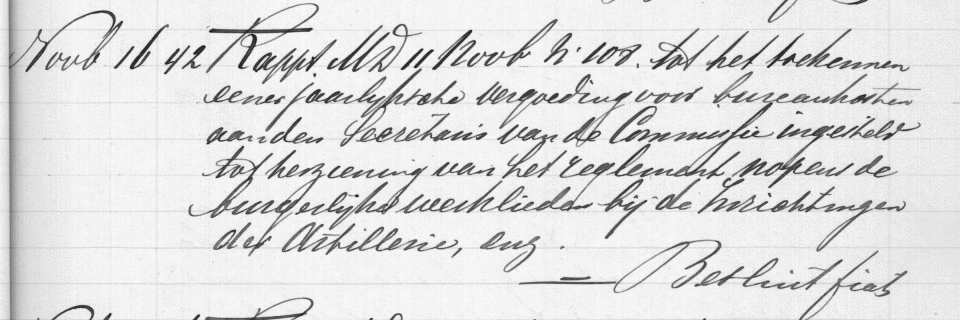 Novb 16 42 Rappt. MD 11 Novb N. 108. tot het toekennen
eener jaarlijksche vergoeding voor bureaukosten
aan den Secretaris van de Commissie ingesteld
tot herziening van het reglement nopens de
burgerlijke werklieden bij de Inrichtingen
der Artillerie, enz.
— Besluit fiat